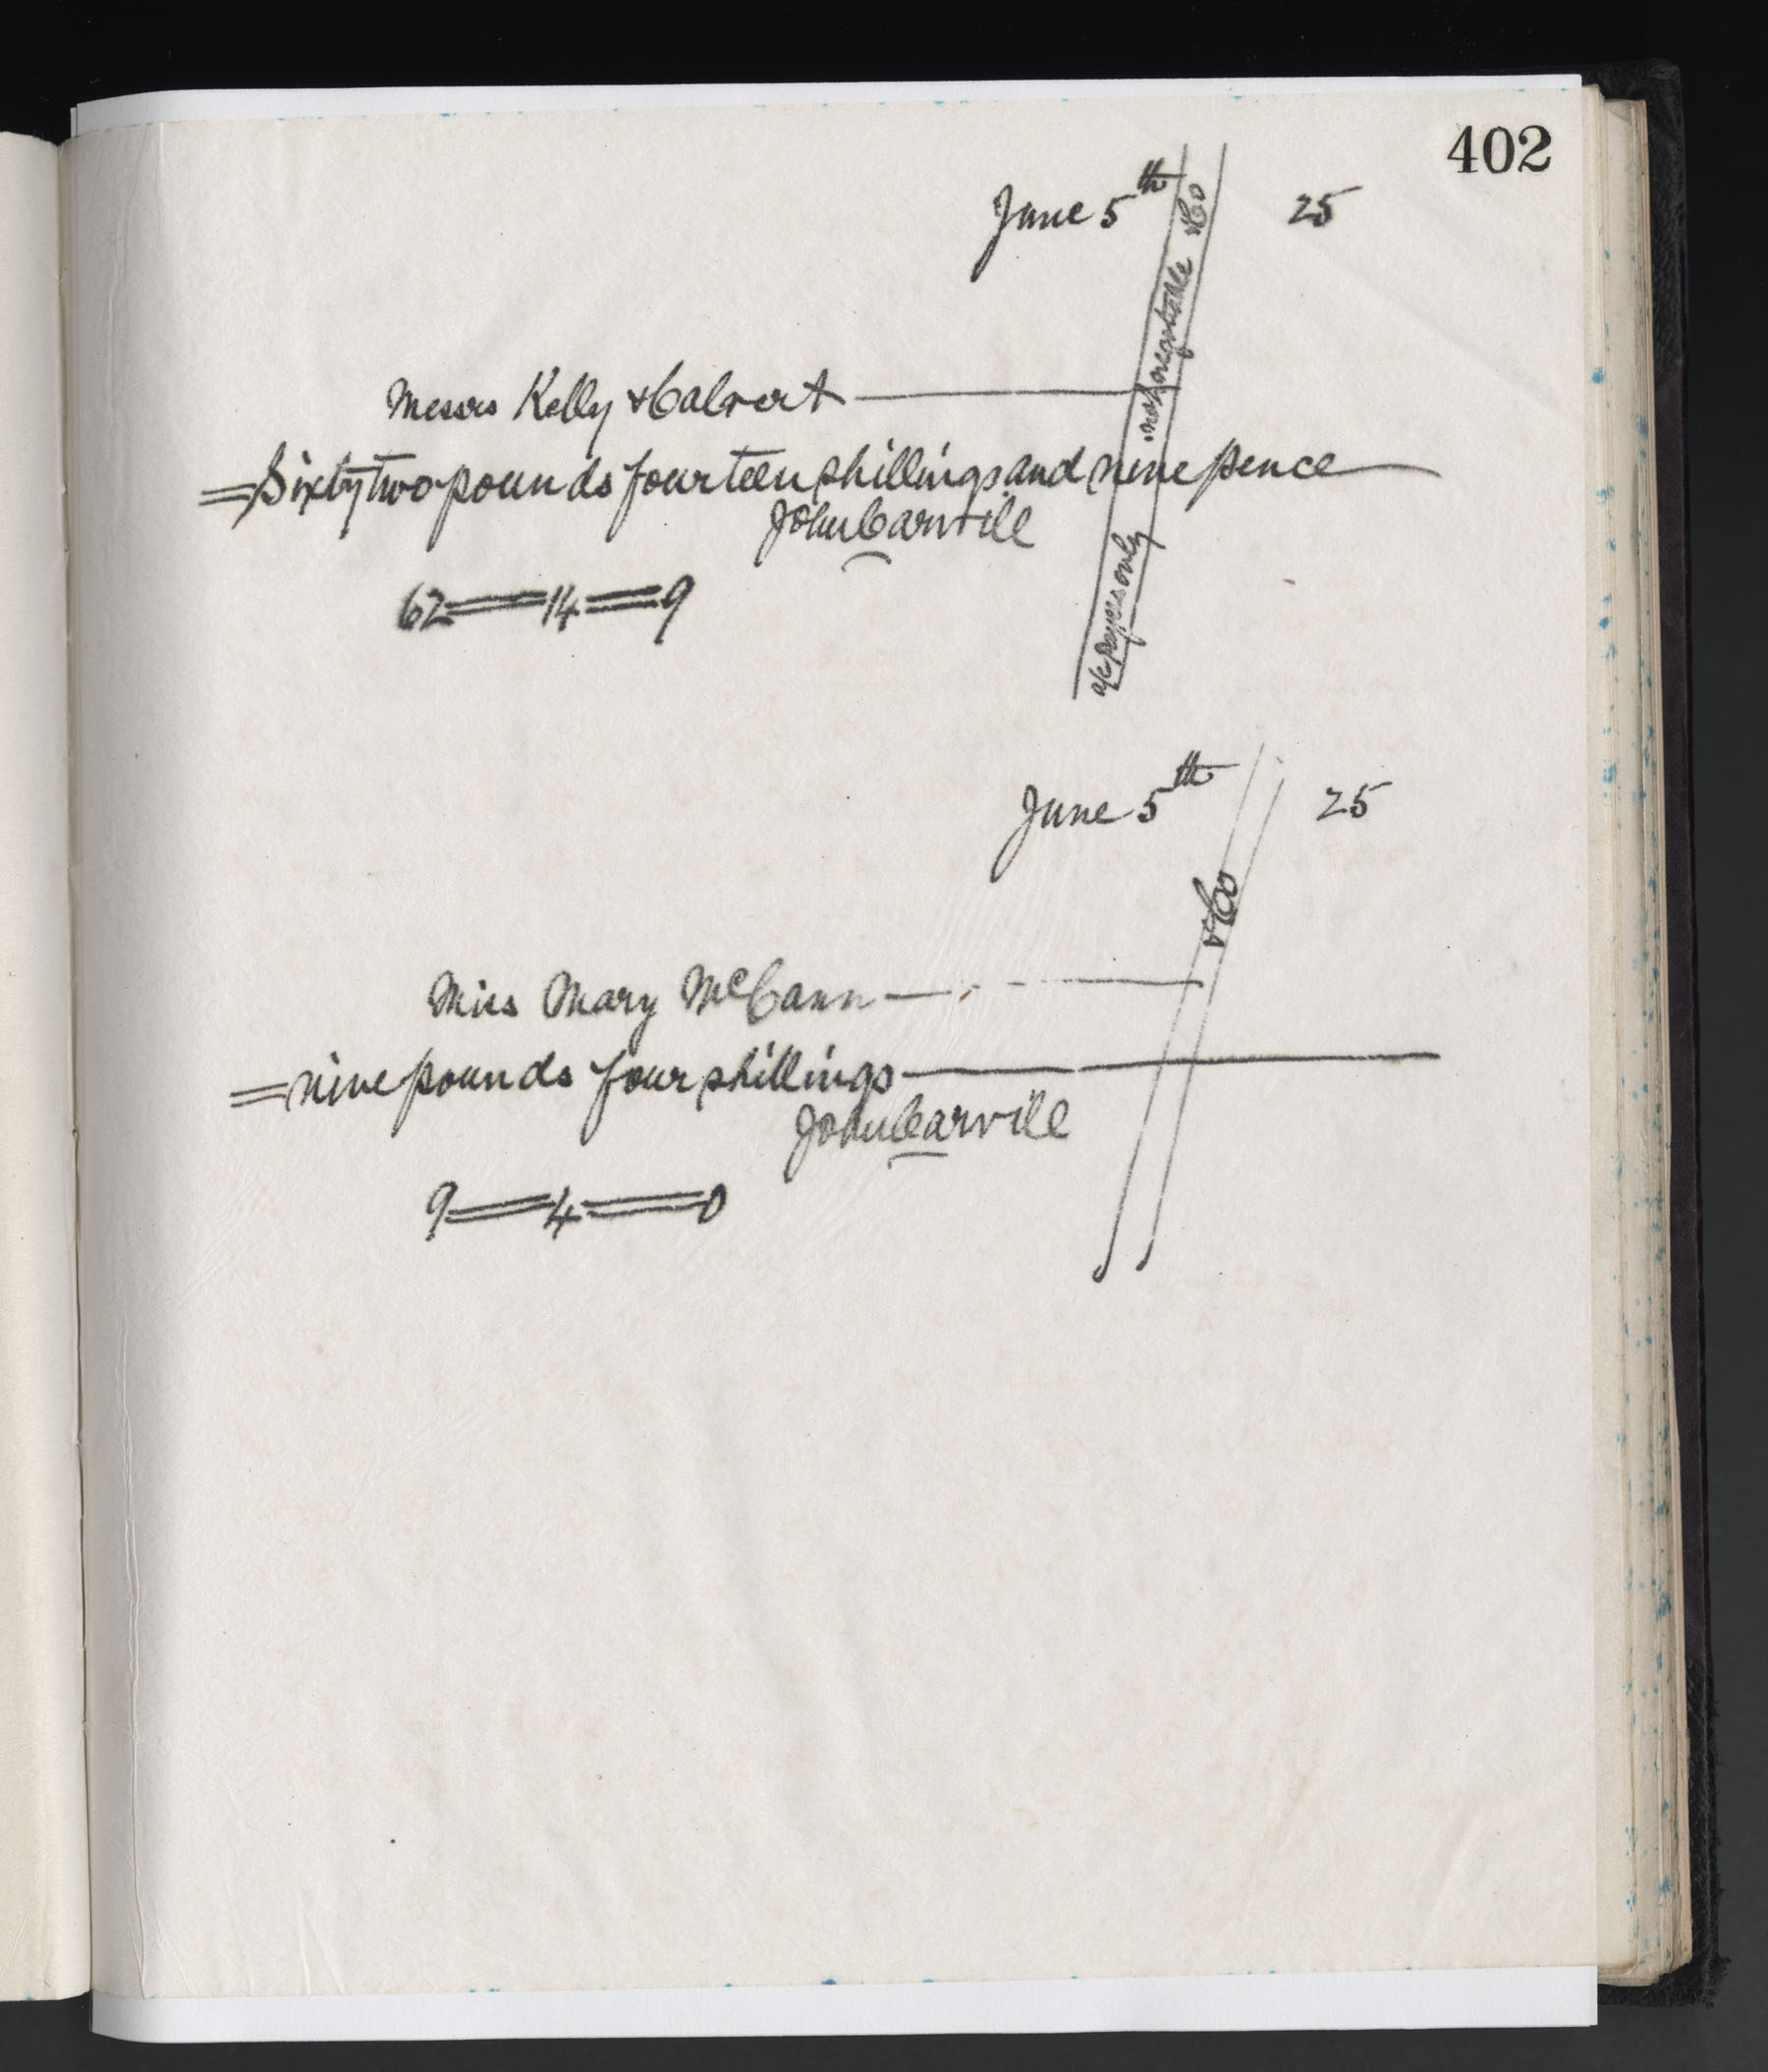 402
June 5th 25
Messrs Kelly & Calvert
=Sixty two pounds fourteen shillings and nine pence
John Carvill
62==14==9
a/c payees only not negotiable & Co
June 5th 25
Miss Mary McCann
=nine pounds four shillings
John Carvill
9==4==0
& Co